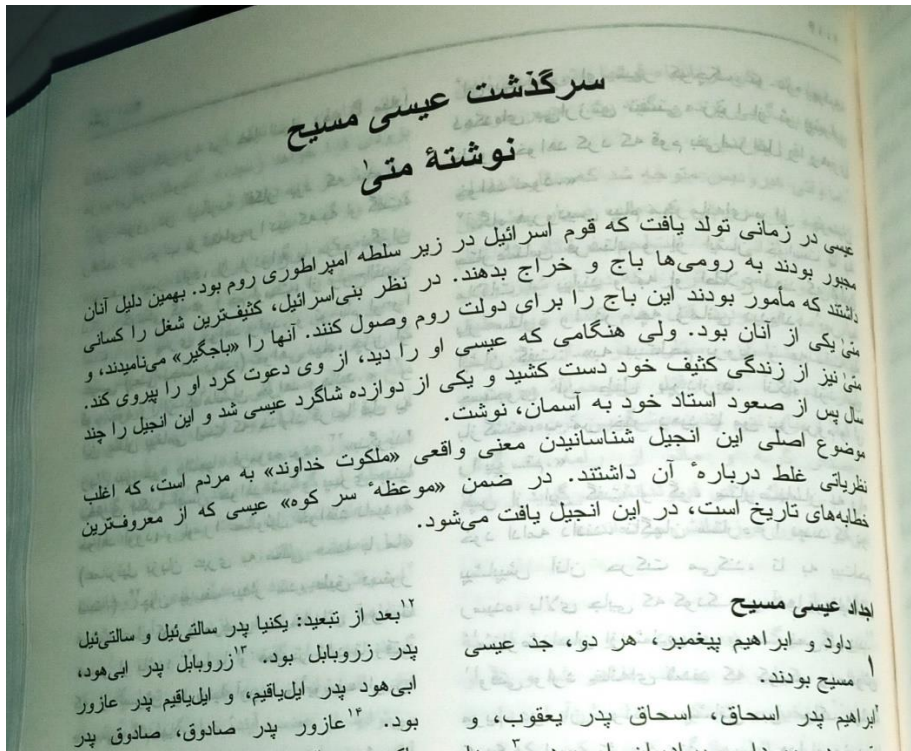 سرگذشت عیسی مسیح
نوشتهٔ متی۱
عیسی در زمانی تولد یافت که قوم اسرائیل در زیر سلطه امپراطوری روم بود. بهمین دلیل آنان
مجبور بودند به رومی‌ها باج و خراج بدهند. در نظر بنی‌اسرائیل، کثیف‌ترین شغل را کسانی
داشتند که مأمور بودند این باج را برای دولت روم وصول کنند. آنها را «باجگیر» می‌نامیدند، و
متی۱ یکی از آنان بود. ولی هنگامی که عیسی او را دید، از وی دعوت کرد او را پیروی کند.
متی۱ نیز از زندگی کثیف خود دست کشید و یکی از دوازده شاگرد عیسی شد و این انجیل را چند
سال پس از صعود استاد خود به آسمان، نوشت.
موضوع اصلی این انجیل شناسانیدن معنی واقعی «ملکوت خداوند» به مردم است، که اغلب
نظریاتی غلط دربارهٔ آن داشتند. در ضمن «موعظهٔ سر کوه» عیسی که از معروف‌ترین
خطابه‌های تاریخ است، در این انجیل یافت می‌شود.
اجداد عیسی مسیح
۱ داود و ابراهیم پیغمبر، هر دو، جد عیسی
مسیح بودند.
۲ابراهیم پدر اسحاق، اسحاق پدر یعقوب، و
۱۲بعد از تبعید: یکنیا پدر سالتی‌ئیل و سالتی‌ئیل
پدر زروبابل بود. ۱۳زروبابل پدر ابی‌هود،
ابی‌هود پدر ایل‌یاقیم، و ایل‌یاقیم پدر عازور
بود. ۱۴عازور پدر صادوق، صادوق پدر